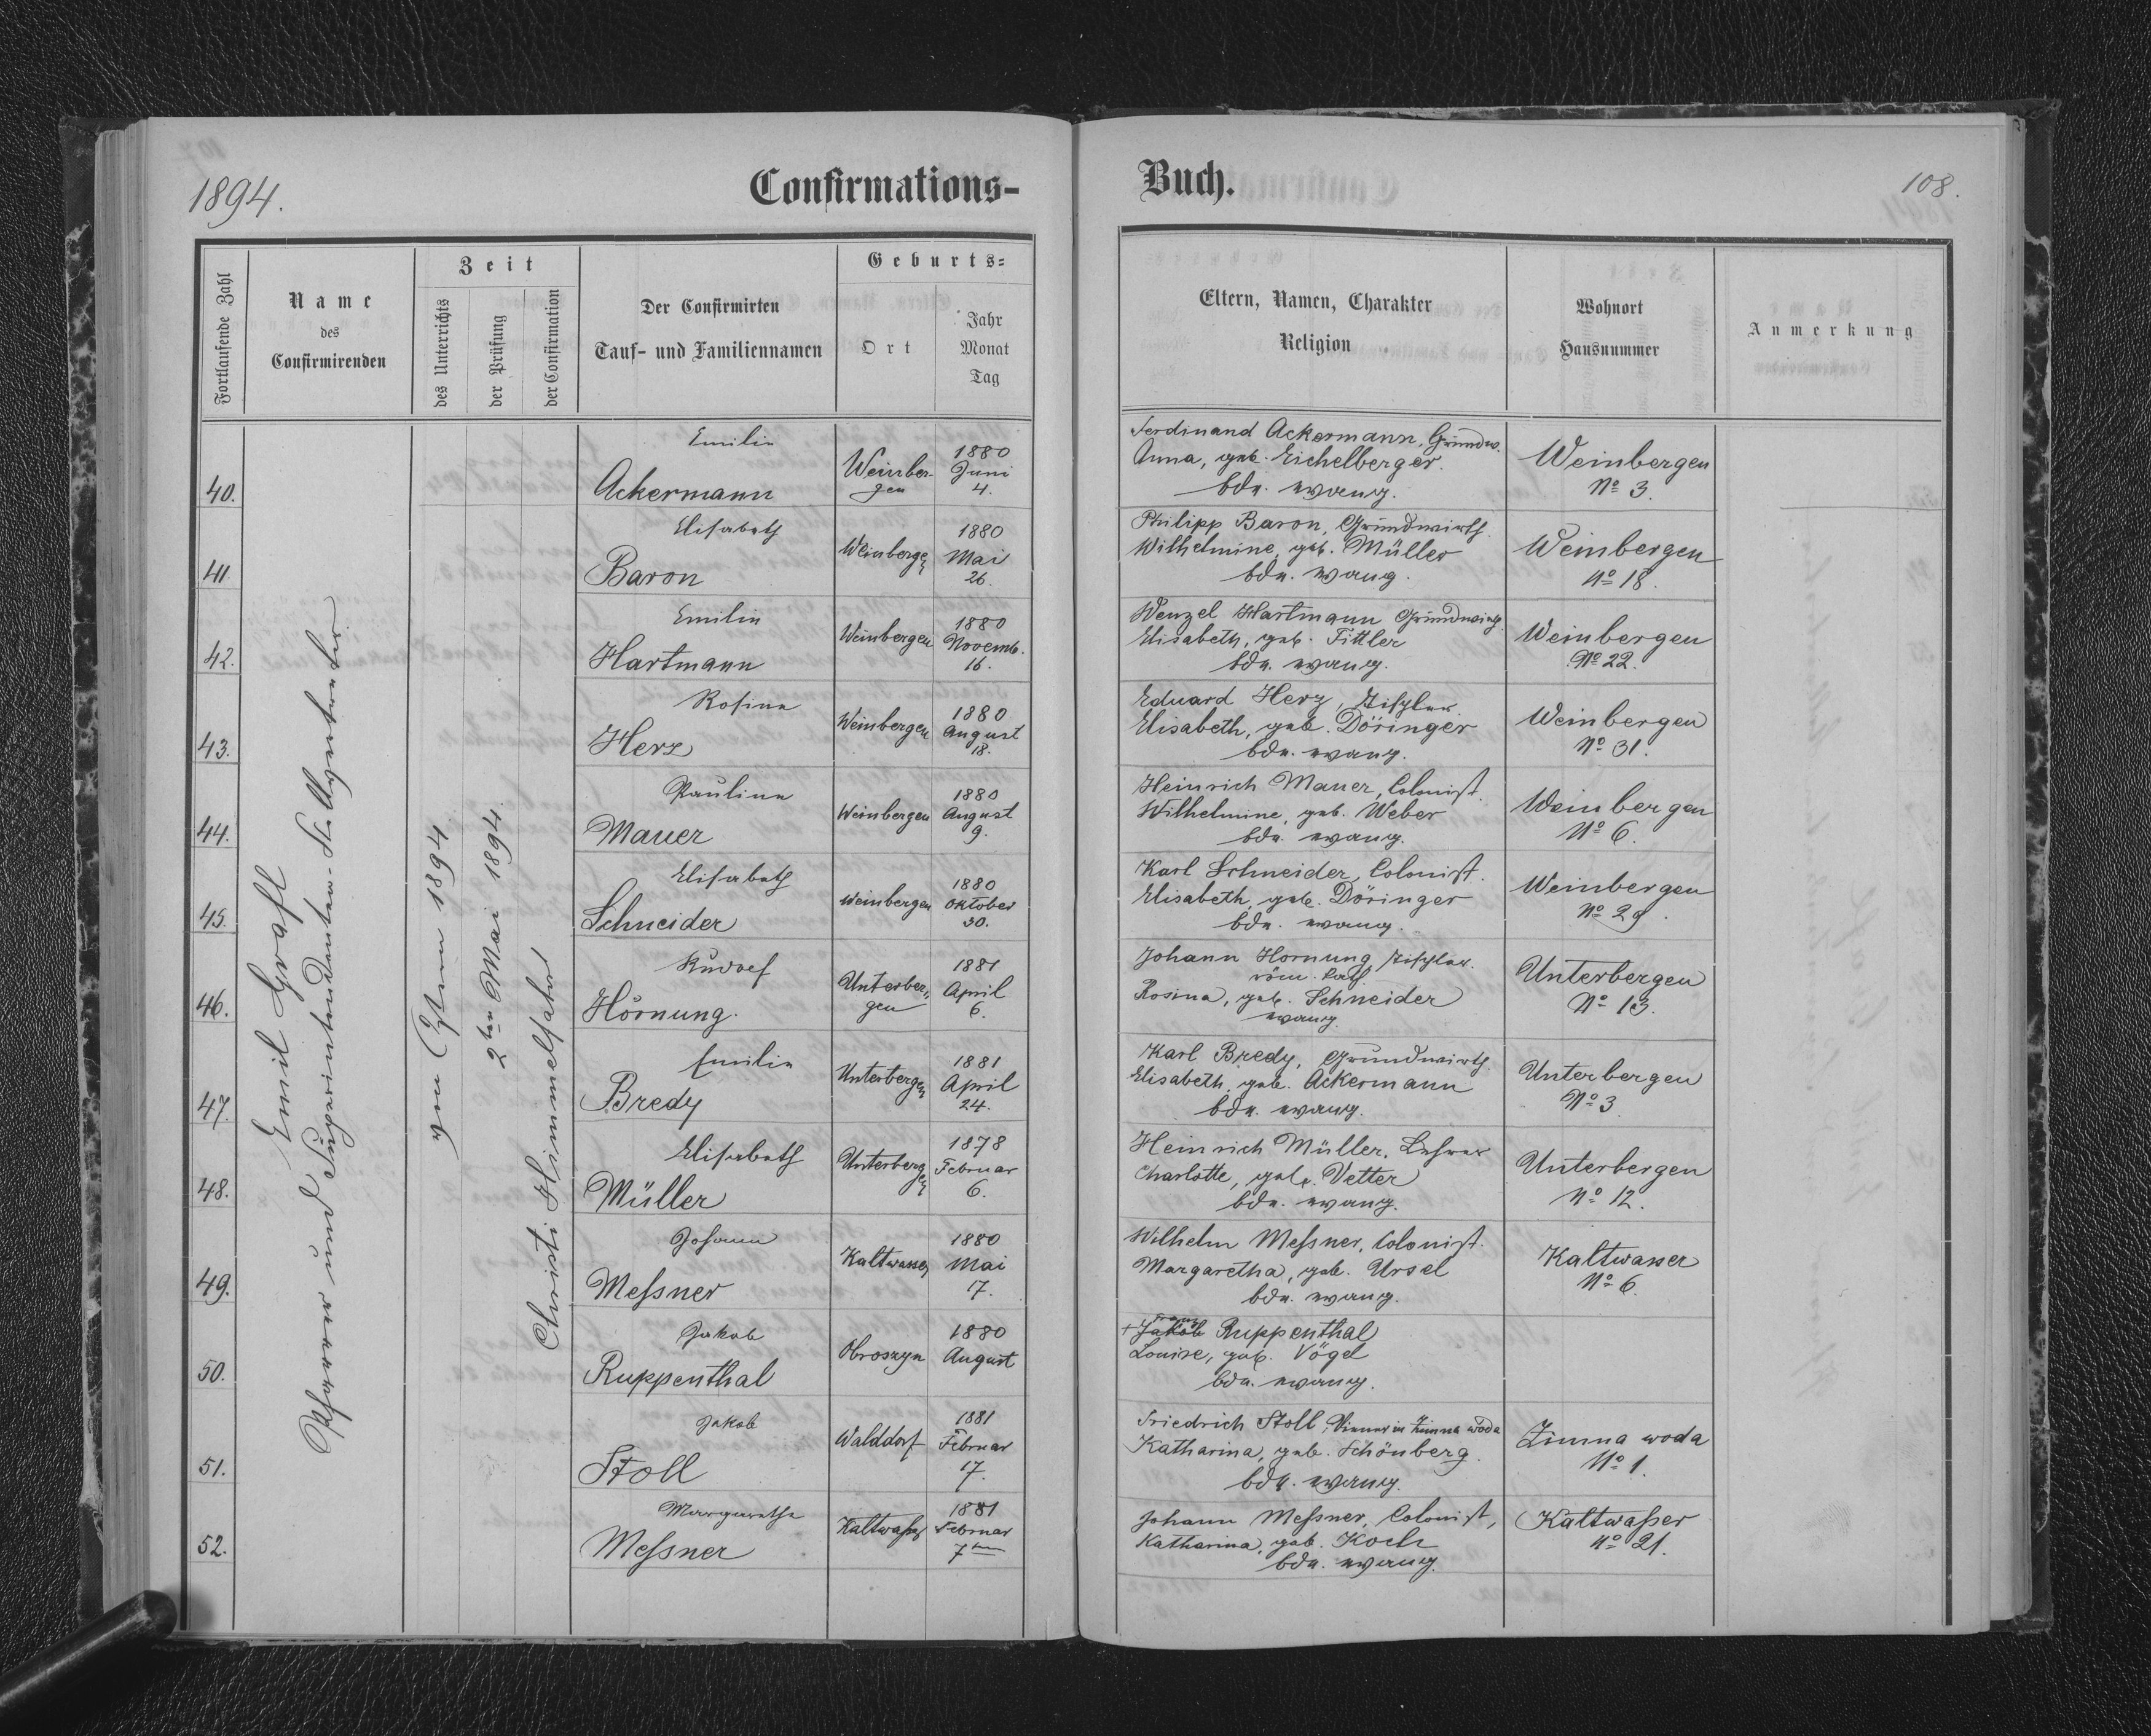 1894.
Confirmations-
Fortlaufende Zahl
Name
des
Confirmirenden
Zeit
des Unterrichts
der Prüfung
der Confirmation
Der Confirmirten
Tauf- und Familiennamen
Geburts-
Ort
Jahr
Monat
Tag
Emil Grafl
Pfarrer und Superintendenten-Stellvertreter
von Ostern 1894.
2ten Mai 1894.
Christi Himmelfahrt
40.
Emilie
Ackermann
Weinber-
gen
1880
Juni
4.
41.
Elisabeth
Baron
Weinbergen
1880
Mai
26.
42.
Emilie
Hartmann
Weinbergen
1880
Novemb.
16.
43.
Rosina
Herz
Weinbergen
1880
August
18.
44.
Paulina
Mauer
Weinbergen
1880
August
9.
45.
Elisabeth
Schneider
Weinbergen
1880
Oktober
30.
46.
Rudolf
Hornung.
Unterber-
gen
1881
April
6.
47.
Emilie
Bredy
Unterbergen
1881
April
24.
48.
Elisabeth
Müller
Unterbergen
1878
Februar
6.
49.
Johann
Meſsner
Kaltwasser
1880
Mai
7.
50.
Jakob
Ruppenthal
Obroszyn
1880
August
51.
Jakob
Stoll
Walddorf
1881
Februar
17.
52.
Margaretha
Meſsner
Kaltwaſser
1881
Februar
7ten
Buch.
108.
Eltern, Namen, Charakter
Religion
Wohnort
Hausnummer
Anmerkung
Ferdinand Ackermann, Grundw.
Anna, geb. Eichelberger.
bde. evang.
Weinbergen
No 3.
Philipp Baron, Grundwirth.
Wilhelmine, geb. Müller
bde. evang.
Weinbergen
No 18.
Wenzel Hartmann Grundwirth.
Elisabeth, geb. Tittler
bde. evang.
Weinbergen
No 22.
Eduard Herz, Tischler.
Elisabeth, geb. Döringer
bde. evang.
Weinbergen
No 31.
Heinrich Mauer, Colonist.
Wilhelmine, geb. Weber
bde. evang.
Weinbergen
No 6.
Karl Schneider, Colonist.
Elisabeth, geb. Döringer
bde. evang.
Weinbergen
No 29.
Johann Hornung, Tischler.
röm. Cath.
Rosina, geb. Schneider
evang.
Unterbergen
No 13.
Karl Bredy, Grundwirth.
Elisabeth, geb. Ackermann
bde. evang.
Unterbergen
No 3
Heinrich Müller, Lehrer
Charlotte, geb. Vetter
bde. evang.
Unterbergen
No 12.
Wilhelm Meſsner, Colonist.
Margaretha, geb. Ursel
bde. evang.
Kaltwasser
No 6.
Franz
+ Jakob Ruppenthal
Louise, geb. Vögel
bde. evang.
Friedrich Stoll, Diener in Zimna woda
Katharina, geb. Schönberg.
bde. evang.
Zimna woda
No 1.
Johann Meſsner, Colonist,
Katharina, geb. Koch
bde. evang.
Kaltwaſser
No 21.